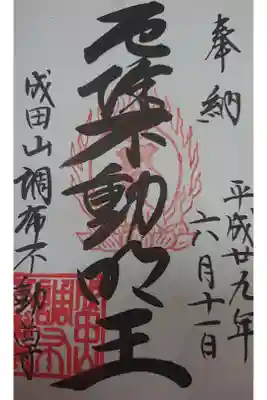 奉納
平成廿九年
六月十一日
厄除不動明王
成田山調布不動尊